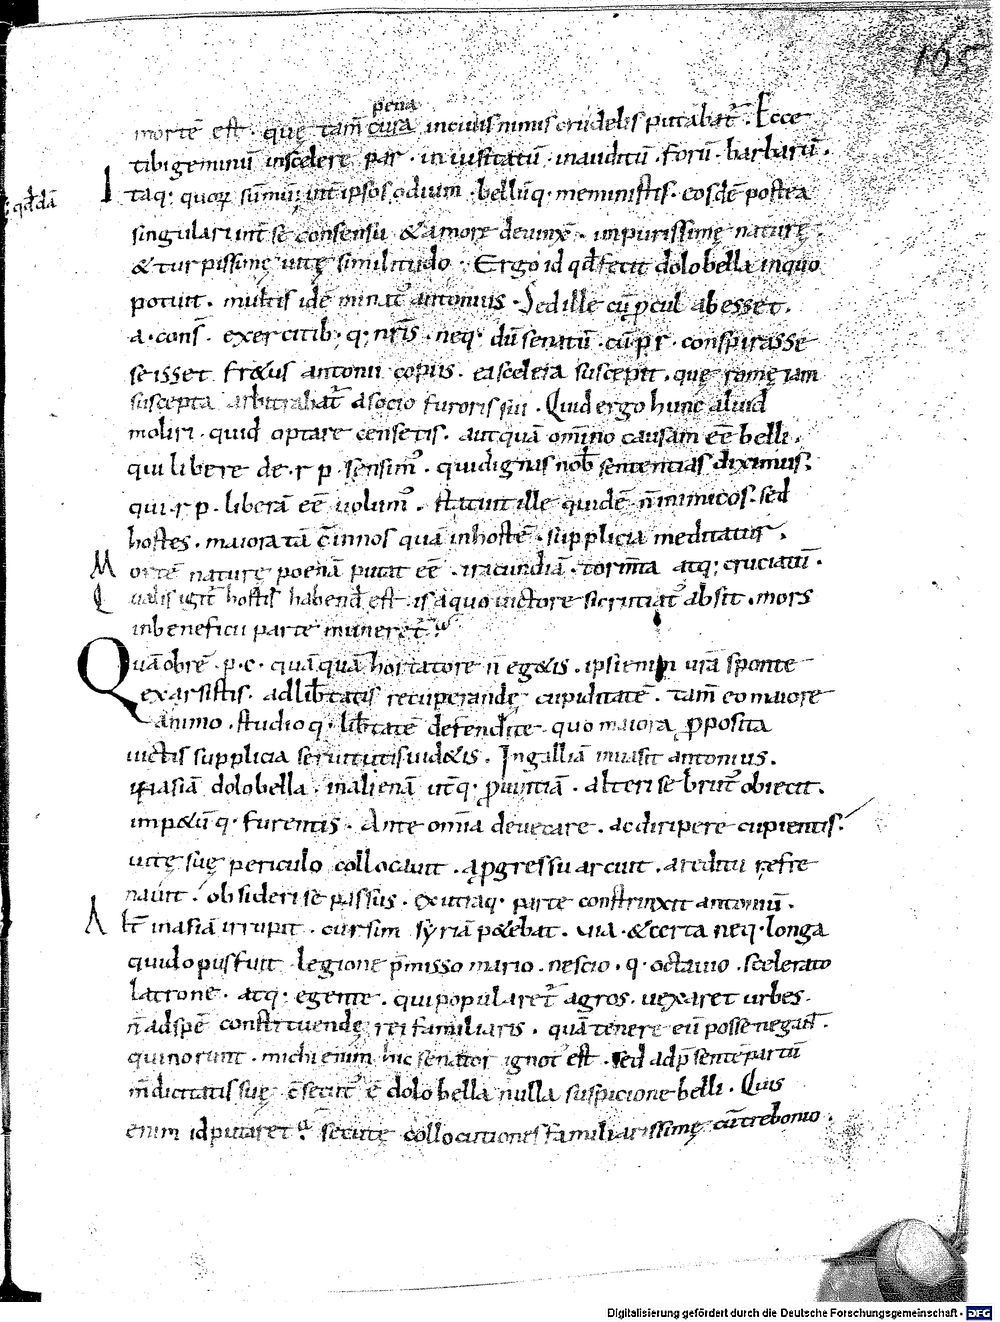 105
pena
mortē est · quę tam̄ cuia incuiisnimis crudelis putabat᷑ · Ecce
tibi geminū inscelere par · inuisitatū · inauditū · ferū · barbarū ·
Itaq· quoꝝ sum̄ū int̄ ipsos odium · bellūq· meministis · eosdē postea
singulari int̄ se consensu & amore deuinx̄ · inpurissimę naturę
& turpissimę uitę similitudo · Ergo id qđ fecit dolobella inquo
potuit · multis idē minat᷑ antonius · Sed ille cū pcul abesset ·
a · cons̄ · exercitib; q; nr̄is · neq· dū senatū · cū p r · conspirasse
seisset fr&us antonii copiis · ea scelera suscepit · quę romę iam
suscepta arbitrabat᷑ asocio furoris sui · Quid ergo hunc aliud
moliri · quid optare censetis · aut quā om̄ino causam eē belli ·
qui libere de · r p · sensim᷒ · qui dignas nob̄ sententias diximus ·
qui · r p · liberā eē uolum᷒ · statuit ille quidē n̄ inimicos · sed
hostes · maiora tā c̄ in nos quā in hostē · supplicia meditatur ·
Mortē naturę poenā putat eē · iracundiā · torm̄ta atq; cruciatū ·
Qualis igit᷑ hostis habend᷒ est · is a quo uictore si cruciat᷒ absit · mors
in beneficii parte muneret᷑
Quāobrē · p · c · quāquā hortatore n̄ eg&is · ipsi enim ur̄a sponte
exarsistis · ad lib̄tatis recuperandę cupiditatē · tam̄ eo maiore
animo · studioq· lib̄tatē defendite · quo maiora ꝓposita
uictis supplicia seruitutis uid&is · In galliā inuasit antonius ·
asiā dolobella · in alienā ut̄q· ꝓuintiā · alteri se brut᷒ obiecit ·
imp&ūq· furentis · Ante omīa deuexare · ac diripere cupientis ·
uitę suę periculo collocauit · a ꝓgressu arcuit · a reditu refre
nauit · obsideri se passus · ex utraq· parte constrinxit antoniū ·
Alt̄ in asiā irrupit · cursim syriā p&ebat · uia · & certa neq· longa
quid opus fuit · legione p̄misso mario · nescio · q · octauio · scelerato
latrone · atq· egente · qui popularet᷑ agros · uexaret urbes ·
n̄ ad spē constituendę rei familiaris · quā tenere eū posse negant ·
qui norunt · michi enim hic senator ignot᷒ est · sed ad p̄sentē partū
m̄dicitatis suę c̄secut᷒ ē dolobella nulla suspicione belli · Quis
enim id putaret · secutę collocutiones familiarissimę cū trebonio ·
Digitalisierung gefördert durch die Deutsche Forschungsgemeinschaft - DFG